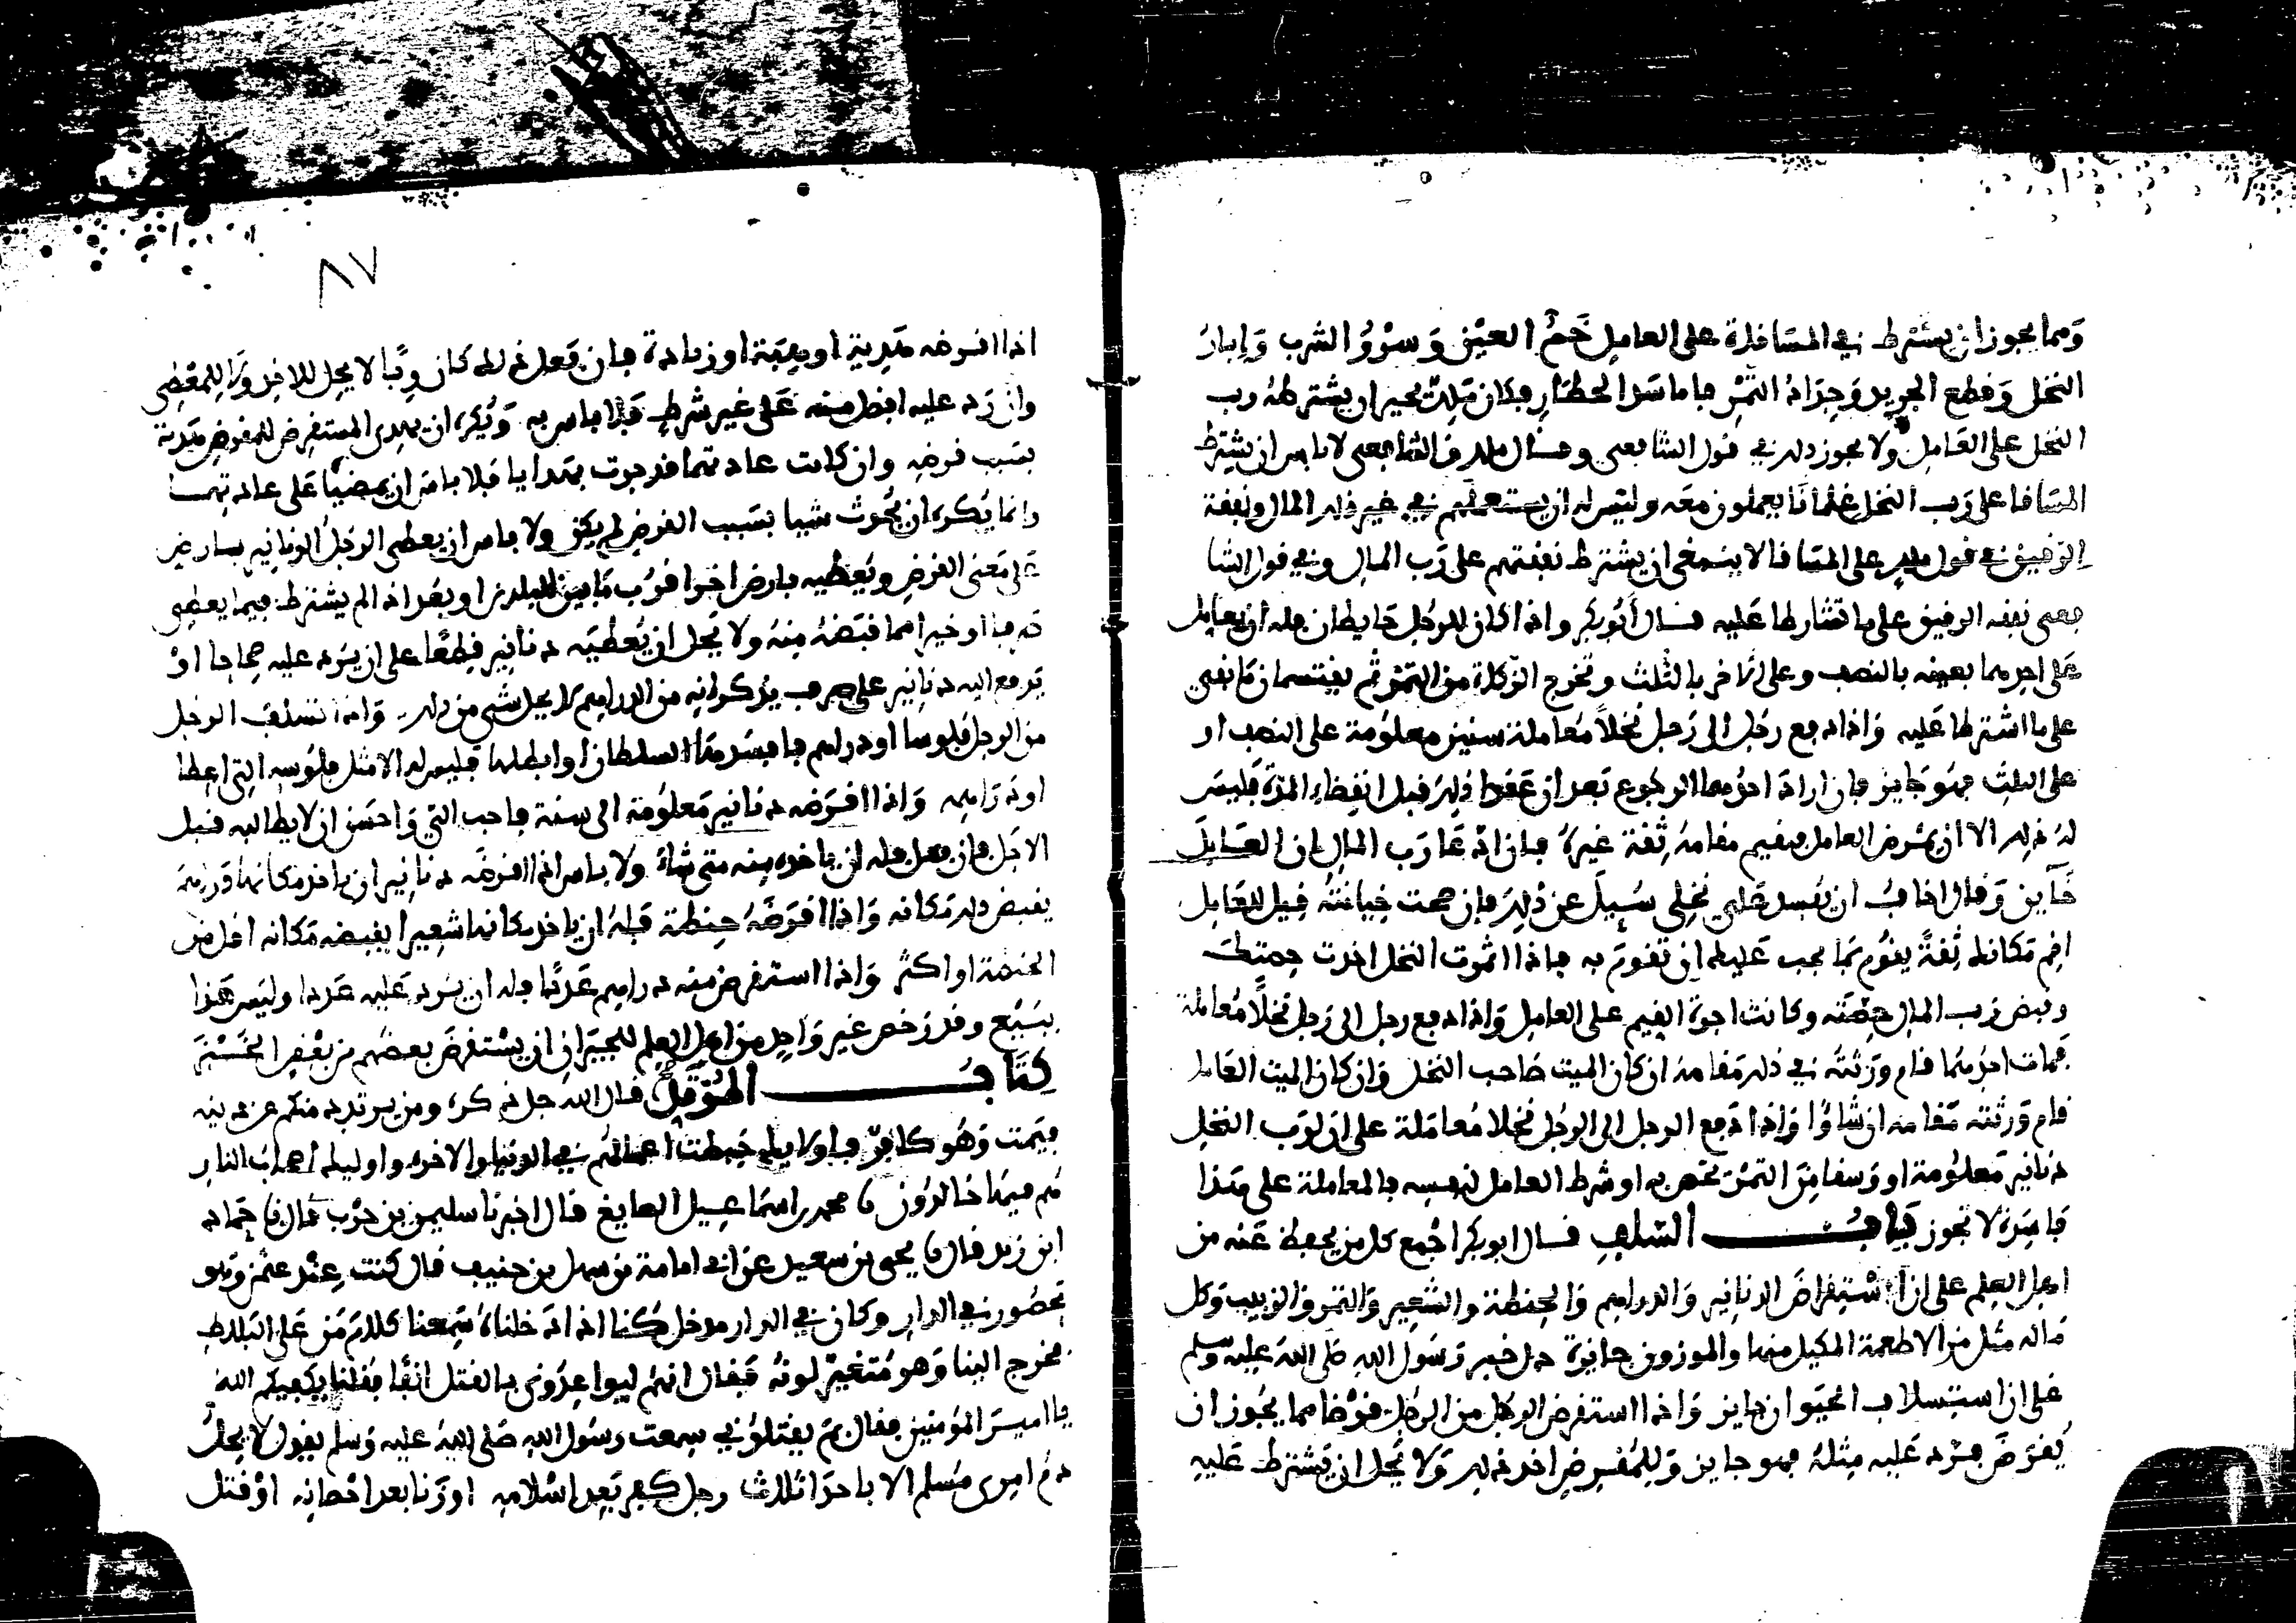 ومما يجوز ان يشترط في المساقاة على العامل خم العين وسرو الشرب وابار
النخل وقطع الجريد وجزاذ الثمر فاما سد الحظار فكان ملك يجيز ان يشترطه رب
النخل على العامل ولا يجوز ذلك في قول الشافعي وقال ملك والشافعي لا باس ان يشترط
المساقا على رب النخل غلمانا يعملون معه وليس له ان يستعملهم في غير ذلك المال ونفقة
الرقيق في قول ملك على المساقا لا ينبغي ان يشترط نفقتهم على رب المال وفي قول الشا
فعي نفقة الرقيق على ما تشارطا عليه قال ابو بكر واذا كان للرجل حايطان فله ان يعامل
على احدهما بعينه بالنصف وعلى الاخر بالثلث وتخرج الزكاة من الثمر ثم يقتسمان ما بقي
على ما اشترطا عليه واذا دفع رجل الى رجل نخلا معاملة سنين معلومة على النصف او
على الثلث فهو جايز فان اراد احدهما الرجوع بعد ان عقدا ذلك قبل انقضاء المدة فليس
له ذلك الا ان يمرض العامل فيقيم مقامه ثقة غيره فان ادعا رب المال ان العامل
خاين وقال اخاف ان يفسد علي نخلي سيل عن ذلك فان صحت خيانته قيل للعامل
اقم مكانك ثقة يقوم بما يجب عليك ان تقوم به فاذا اثمرت النخل اخذت حصتك
وقبض رب المال حصته وكانت اجرة القيم على العامل واذا دفع رجل الى رجل نخلا معاملة
فمات احدهما قام ورثته في ذلك مقامه ان كان الميت صاحب النخل وان كان الميت العامل
قام ورثته مقامه ان شاوا واذا دفع الرجل الى الرجل نخلا معاملة على ان لرب النخل
دنانير معلومة او وسقا من الثمر يختص به او شرط العامل لنفسه فالمعاملة على هذا
فاسدة لا تجوز كتاب السلف قال ابو بكر اجمع كل من يحفظ عنه من
اهل العلم على ان استقراض الدنانير والدراهم والحنطة والشعير والتمر والزبيب وكل
ماله مثل من الاطعمة المكيل منها والموزون جايزة دل خبر رسول الله صلى الله عليه وسلم
على ان استسلاف الحيوان جايز واذا استقرض الرجل من الرجل قرضا مما يجوز ان
يقرض فرد عليه مثله فهو جايز وللمقرض اخذ ذلك ولا يحل ان يشترط عليه
٨٧
اذا اقرضه هدية او هبة او زيادة فان فعل ذلك كان ربا لا يحل للاخذ ولا للمعطي
وان رد عليه افضل منه على غير شرط فلا باس به ويكره ان يهدي المستقرض للمقرض هدية
بسبب قرضه وان كانت عادتهما قد جرت بهدايا فلا باس ان يمضيا على عادتهما
وانما يكره ان يحدث شيا بسبب القرض لم يكن ولا باس ان يعطي الرجل الرجل الدنانير بارض
على معنى القرض ويعطيه بارض اخرا قرب ما بين البلدين او بعد اذا لم يشترط فيما يعطي
ذهبا او خيرا مما قبضه منه ولا يحل ان يعطيه دنانير قطعا على ان يرد عليه صحاحا او
يدفع اليه دنانير على صرف يذكرانه من الدراهم لا يحل شي من ذلك واذا تسلف الرجل
من الرجل فلوسا او دراهم فافسدها السلطان او ابطلها فليس له الا مثل فلوسه التي اعطا
او دراهمه واذا اقرضه دنانير معلومة الى سنة فاحب الي واحسن ان لا يطالبه قبل
الاجل فان فعل فله ان ياخذه منه متى شاء ولا باس اذا اقرضه دنانير ان ياخذ مكانها دراهم
يقبض ذلك مكانه واذا اقرضه حنطة فله ان ياخذ مكانها شعيرا يقبضه مكانه اقل من
الحنطة او اكثر واذا استقرض منه دراهم عددا فله ان يرد عليه عددا وليس هذا
ببيع وقد رخص غير واحد من اهل العلم للجيران ان يستقرض بعضهم من بعض الخبز
كتاب المرتد قال الله جل ذكره ومن يرتدد منكم عن دينه
فيمت وهو كافر فاوليك حبطت اعمالهم في الدنيا والاخره واوليك اصحاب النار
هم فيها خالدون نا محمد بن اسماعيل الصايغ قال اخبرنا سليمن بن حرب قال نا حماد
ابن زيد قال نا يحيى بن سعيد عن ابي امامة بن سهل بن حنيف قال كنت عند عثمن وهو
محصور في الدار وكان في الدار مدخل كنا اذا دخلناه سمعنا كلام من على البلاط
فخرج الينا وهو متغير لونه فقال انهم ليواعدوني بالقتل انفا فقلنا يكفيكهم الله
يا امير المؤمنين فقال بم يقتلوني سمعت رسول الله صلى الله عليه وسلم يقول لا يحل
دم امرى مسلم الا باحدا ثلاث رجل كفر بعد اسلامه او زنا بعد احصانه او قتل